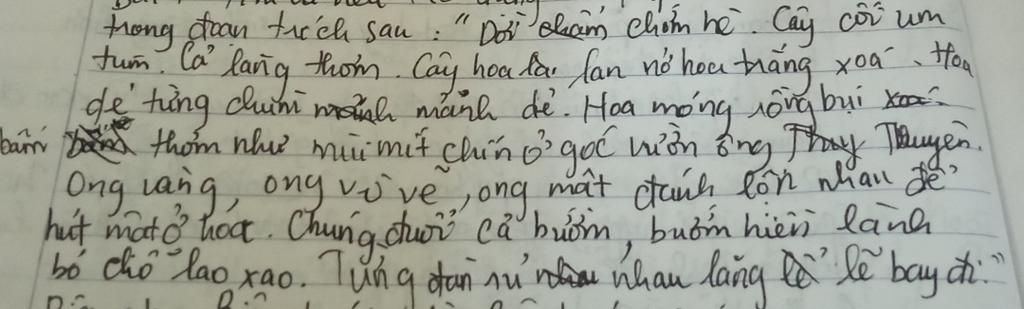 trong đoạn trích sau: "Dời chăm chớm hè. Cây cối um
tùm. Cả làng thơm. Cây hoa lan nở hoa trắng xoá. Hoa
dẻ từng chùm mảnh dẻ. Hoa móng rồng bụi
bẫm thơm như mùi mít chín ở góc vườn ông Tuyên.
Ong vàng, ong vò vẽ, ong mật đánh lộn nhau để
hút mật ở hoa. Chúng đuổi cả bướm, bướm hiền lành
bỏ chỗ lao xao. Từng đàn rủ nhau lặng lẽ bay đi."